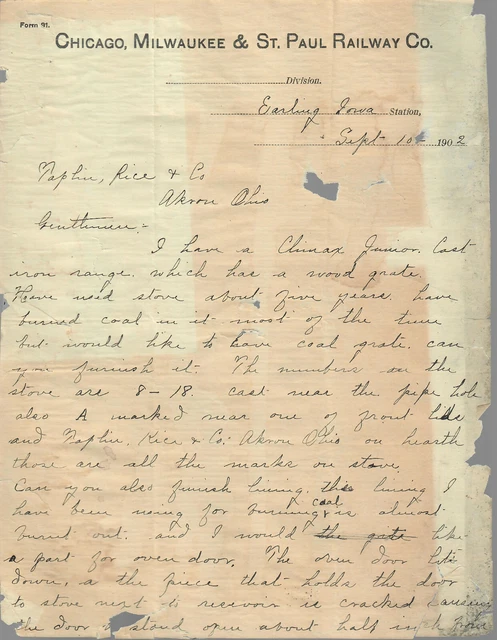 Form 91.
CHICAGO, MILWAUKEE & ST. PAUL RAILWAY CO.
Division.
Earling Iowa Station,
Sept 10 1902
Taplin, Rice & Co
Akron Ohio
Gentlemen:-
I have a Climax Junior Cast
iron range. which has a wood grate.
Have used stove about five years. have
burned coal in it most of the time
but would like to have coal grate. can
you furnish it. The numbers on the
stove are 8-18. cast near the pipe hole
also A marked near one of front lids
and Taplin, Rice & Co. Akron Ohio on hearth
those are all the marks on stove.
Can you also furnish lining. this lining I
have been using for burning coal is almost
burnt out. and I would the gate like
a part for oven door. The oven door lets
down, a the piece that holds the door
to stove next to resevoir is cracked causing
the door to stand open about half inch from